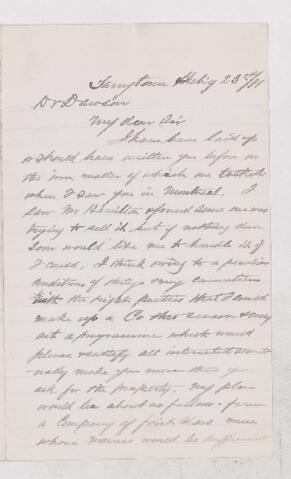 Tarrytown Feby 23rd/81
Dr Dawson
My dear Sir
I have been laid up
or should have written you before on
the iron matter of which we talked
when I saw you in Montreal. I
saw Mr Hamilton informed same me was
trying to sell it but if nothing done
soon would like me to handle it if
I could, I think owing to a peculiar
conditions of things & my connections
with the right parties that I could
make up a Co this season & carry
out a programme which would
please & satisfy all interested &
make you more than you
ask for the property. My plan
would be about as follows - form
a Company of first class men
whose names would be sufficient